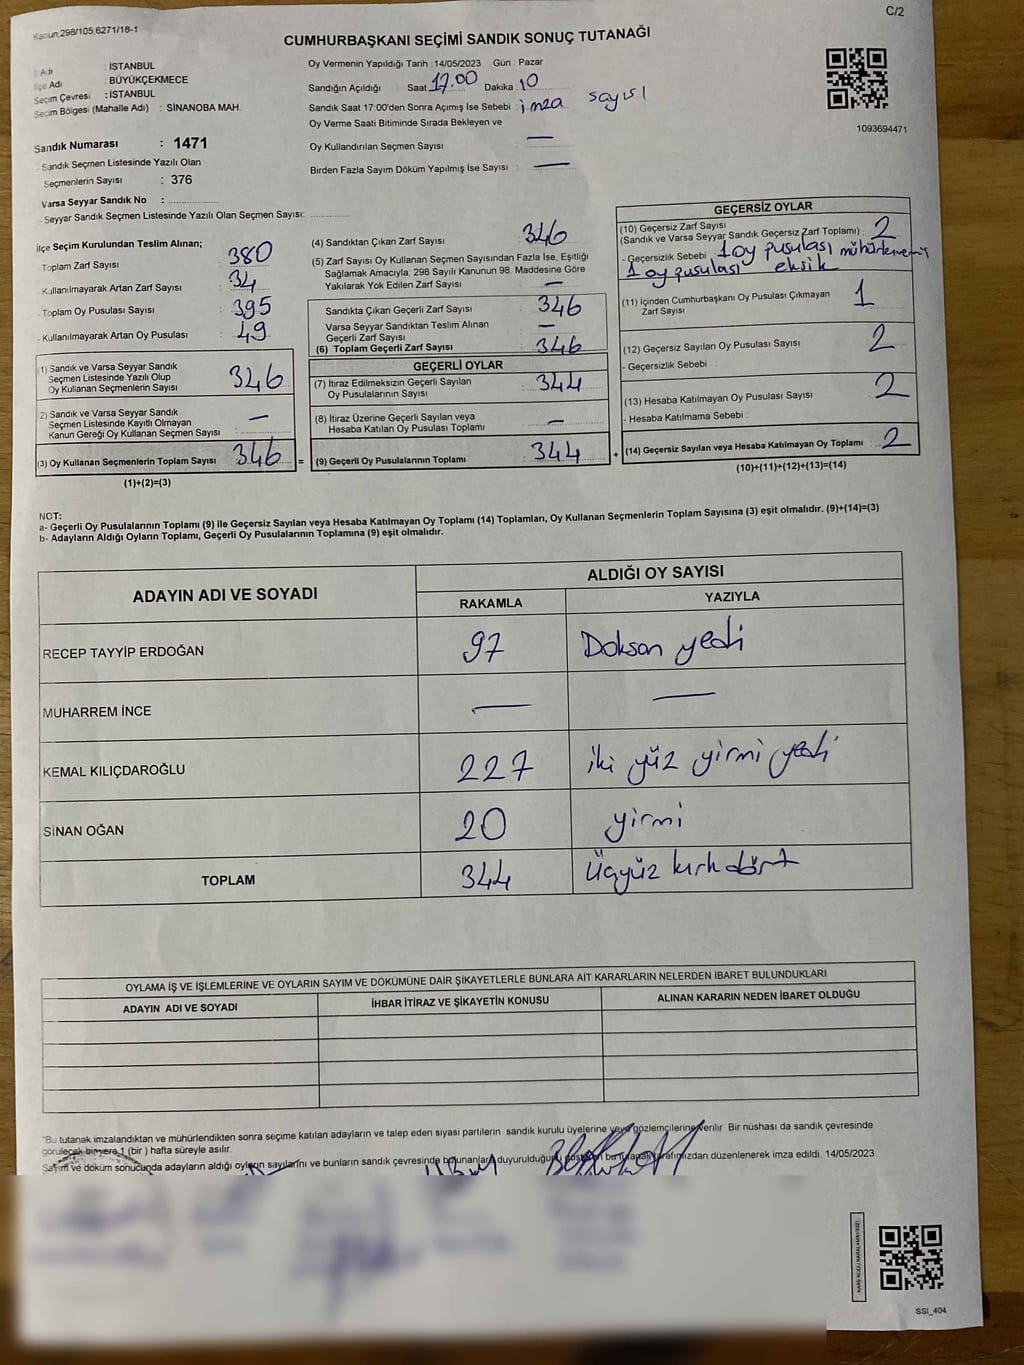 C/2
Kanun;298/105,6271/18-1
CUMHURBAŞKANI SEÇİMİ SANDIK SONUÇ TUTANAĞI
Adı : İSTANBUL
İlçe Adı : BÜYÜKÇEKMECE
Seçim Çevresi : İSTANBUL
Seçim Bölgesi (Mahalle Adı) : SİNANOBA MAH.
Sandık Numarası : 1471
- Sandık Seçmen Listesinde Yazılı Olan
Seçmenlerin Sayısı : 376
Varsa Seyyar Sandık No :
- Seyyar Sandık Seçmen Listesinde Yazılı Olan Seçmen Sayısı:
Oy Vermenin Yapıldığı Tarih : 14/05/2023 Gün : Pazar
Sandığın Açıldığı Saat : 17.00 Dakika : 10
Sandık Saat 17:00'den Sonra Açımış İse Sebebi : imza sayısı
Oy Verme Saati Bitiminde Sırada Bekleyen ve
Oy Kullandırılan Seçmen Sayısı : —
Birden Fazla Sayım Döküm Yapılmış İse Sayısı : —
1093694471
İlçe Seçim Kurulundan Teslim Alınan;
- Toplam Zarf Sayısı : 380
- Kullanılmayarak Artan Zarf Sayısı : 34
- Toplam Oy Pusulası Sayısı : 395
- Kullanılmayarak Artan Oy Pusulası : 49
(1) Sandık ve Varsa Seyyar Sandık
Seçmen Listesinde Yazılı Olup
Oy Kullanan Seçmenlerin Sayısı : 346
(2) Sandık ve Varsa Seyyar Sandık
Seçmen Listesinde Kayıtlı Olmayan
Kanun Gereği Oy Kullanan Seçmen Sayısı : —
(3) Oy Kullanan Seçmenlerin Toplam Sayısı : 346 =
(1)+(2)=(3)
(4) Sandıktan Çıkan Zarf Sayısı : 346
(5) Zarf Sayısı Oy Kullanan Seçmen Sayısından Fazla İse, Eşitliği
Sağlamak Amacıyla, 298 Sayılı Kanunun 98. Maddesine Göre
Yakılarak Yok Edilen Zarf Sayısı : —
Sandıkta Çıkan Geçerli Zarf Sayısı : 346
Varsa Seyyar Sandıktan Teslim Alınan
Geçerli Zarf Sayısı : —
(6) Toplam Geçerli Zarf Sayısı : 346
GEÇERLİ OYLAR
(7) İtiraz Edilmeksizin Geçerli Sayılan
Oy Pusulalarının Sayısı : 344
(8) İtiraz Üzerine Geçerli Sayılan veya
Hesaba Katılan Oy Pusulası Toplamı : —
(9) Geçerli Oy Pusulalarının Toplamı : 344 +
GEÇERSİZ OYLAR
(10) Geçersiz Zarf Sayısı
(Sandık ve Varsa Seyyar Sandık Geçersiz Zarf Toplamı) : 2
- Geçersizlik Sebebi : 1 oy pusulası mühürlenemiş
1 oy pusulası eksik
(11) İçinden Cumhurbaşkanı Oy Pusulası Çıkmayan
Zarf Sayısı : 1
(12) Geçersiz Sayılan Oy Pusulası Sayısı : 2
- Geçersizlik Sebebi :
(13) Hesaba Katılmayan Oy Pusulası Sayısı : 2
- Hesaba Katılmama Sebebi :
(14) Geçersiz Sayılan veya Hesaba Katılmayan Oy Toplamı : 2
(10)+(11)+(12)+(13)=(14)
NOT:
a- Geçerli Oy Pusulalarının Toplamı (9) ile Geçersiz Sayılan veya Hesaba Katılmayan Oy Toplamı (14) Toplamları, Oy Kullanan Seçmenlerin Toplam Sayısına (3) eşit olmalıdır. (9)+(14)=(3)
b- Adayların Aldığı Oyların Toplamı, Geçerli Oy Pusulalarının Toplamına (9) eşit olmalıdır.
ADAYIN ADI VE SOYADI
ALDIĞI OY SAYISI
RAKAMLA YAZIYLA
RECEP TAYYİP ERDOĞAN 97 Doksan yedi
MUHARREM İNCE — —
KEMAL KILIÇDAROĞLU 227 iki yüz yirmi yedi
SİNAN OĞAN 20 yirmi
TOPLAM 344 Üçyüz kırk dört
OYLAMA İŞ VE İŞLEMLERİNE VE OYLARIN SAYIM VE DÖKÜMÜNE DAİR ŞİKAYETLERLE BUNLARA AİT KARARLARIN NELERDEN İBARET BULUNDUKLARI
ADAYIN ADI VE SOYADI İHBAR İTİRAZ VE ŞİKAYETİN KONUSU ALINAN KARARIN NEDEN İBARET OLDUĞU
*Bu tutanak imzalandıktan ve mühürlendikten sonra seçime katılan adayların ve talep eden siyasi partilerin sandık kurulu üyelerine veya gözlemcilerine verilir. Bir nüshası da sandık çevresinde
görülecek bir yere 1 (bir) hafta süreyle asılır.
Sayım ve döküm sonucunda adayların aldığı oyların sayılarını ve bunların sandık çevresinde bulunanlara duyurulduğunu gösteren bu tutanak tarafımızdan düzenlenerek imza edildi. 14/05/2023
SSI_404